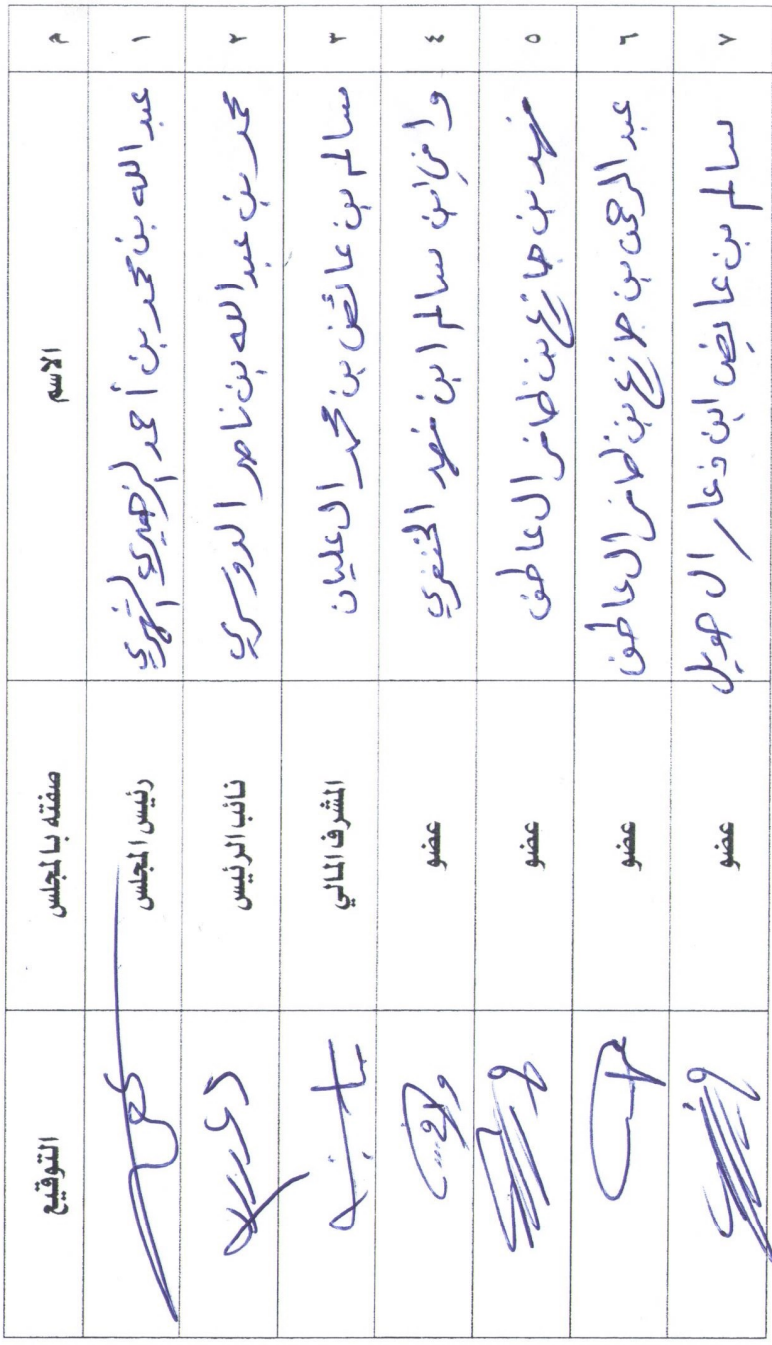 م الاسم صفته بالمجلس التوقيع
١ عبد الله بن محمد بن أحمد الزهيري الشهري رئيس المجلس
٢ محمد بن عبد الله بن ناصر الدوسري نائب الرئيس
٣ سالم بن عائض بن محمد ال عليان المشرف المالي
٤ ابن سالم ابن فهد الخنفري عضو
٥ فهد بن جازع بن ظافر ال عاطف عضو
٦ عبد الرحمن بن جازع بن ظافر ال عاطف عضو
٧ سالم بن عايض ابن دعار ال صويل عضو